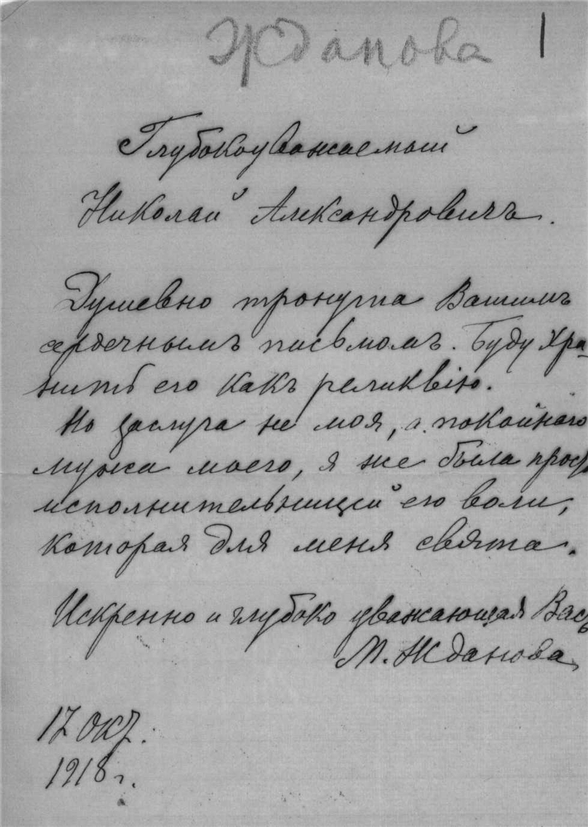 Жданова 1
Глубокоуважаемый
Николай Александровичъ.
Душевно тронута Вашимъ
сердечнымъ письмомъ. Буду хра-
нить его какъ реликвію.
Но заслуга не моя, а покойнаго
мужа моего, я же была просто
исполнительницей его воли,
которая для меня свята.
Искренно и глубоко уважающая Васъ
М. Жданова
17 окт.
1918 г.